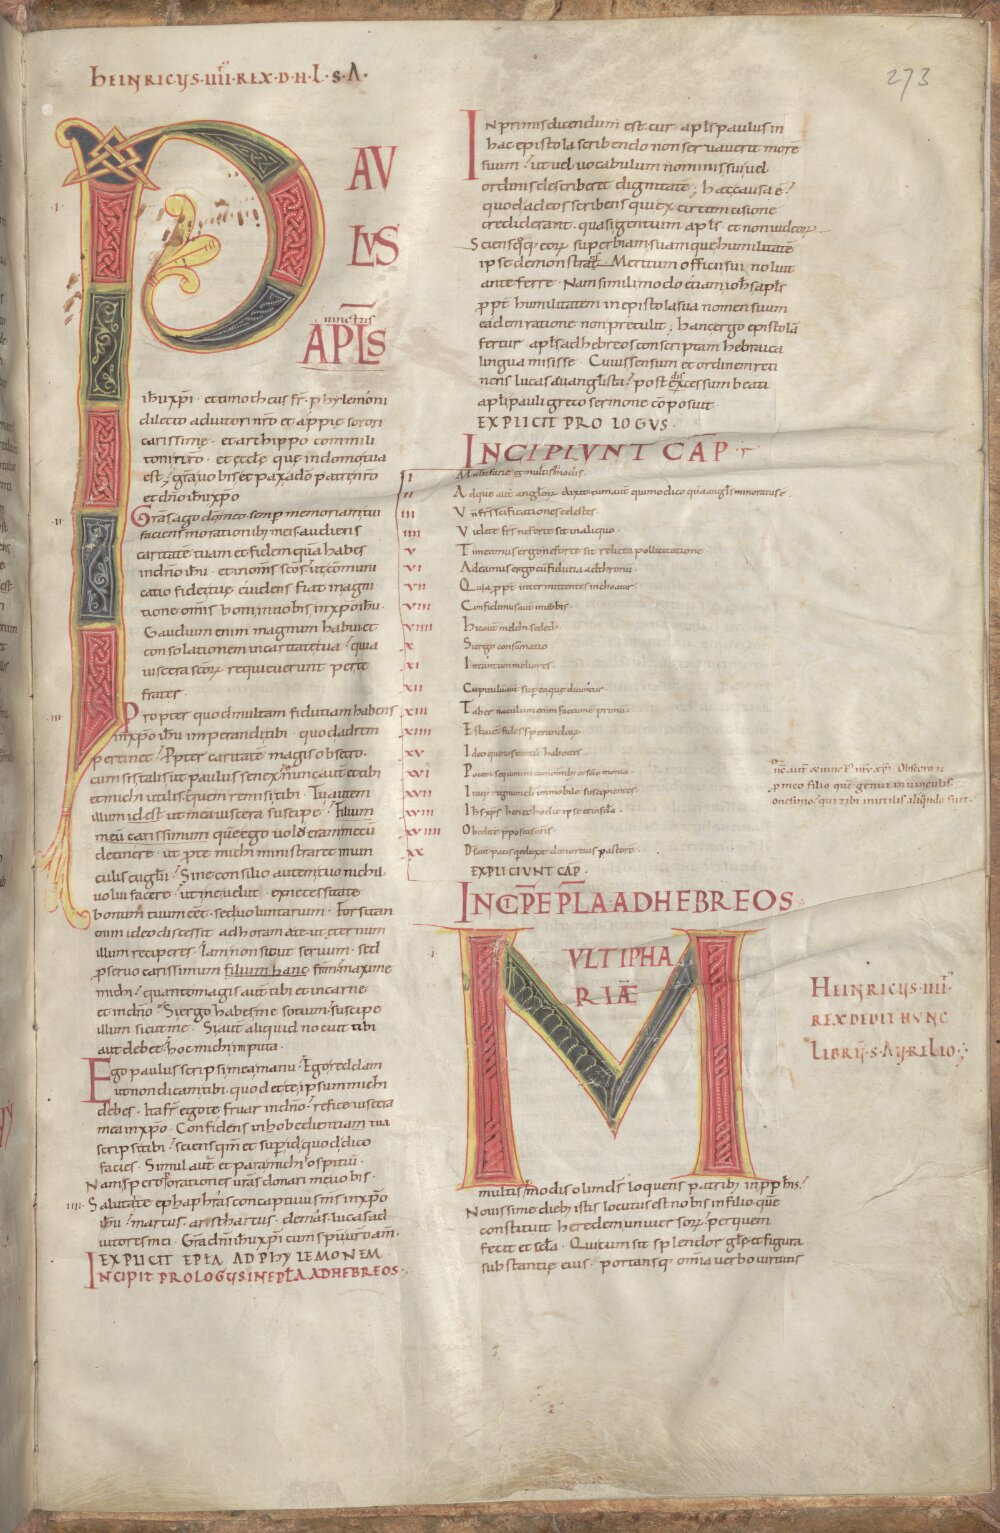 HEINRICYS·IIII·REX·D·H·L·S·A·
273
PAV
LVS
uinctus
APL̅S
ih̅u xp̅i · et timotheus fr̅ · phylemoni
dilecto adiutori nr̅o et appię sorori
carissimę · et archippo commili
toni nr̅o · et eccl̅ę que in domo tua
est · gr̅a uobis et pax a do̅ patre nr̅o
et dn̅o ih̅u xp̅o
Gr̅as ago do̅ meo semp̅ memoriam tui
faciens in orationib; meis audiens
caritate̅ tuam et fidem qua̅ habes
in dn̅o ih̅u · et in om̅s sc̅os · ut com̅uni
catio fidei tuę euidens fiat in agni
tione om̅is boni in uobis in xp̅o ih̅u·
Gaudium enim magnum habui et
consolationem in caritate tua · quia
uiscera sc̅or̅ requieuerunt per te
frater·
Propter quod multam fidutiam habens
in xp̅o ih̅u imperandi tibi · quod ad rem
pertinet · Ppter caritate̅ magis obsecro·
cum sis talis ut paulus senex · nunc aut̅ et tibi
et michi utilis · quem remisi tibi · Tu autem
illum id est ut mea uiscera suscipe · filium
meu̅ carissimum que̅ ego uolueram mecu̅
detinere · ut p̅ te michi ministraret in uin
culis euglii · Sine consilio autem tuo nichil
uolui facere · ut ne uelut · ex necessitate
bonum tuum ee̅t · sed uoluntarium · Forsitan
enim ideo discessit ad horam a te · ut eternum
illum reciperes · Iam non sicut seruum · sed
p̅ seruo carissimum filium hanc frm̅ maxime
michi · quanto magis aut̅ tibi et in carne
et in dn̅o · Si ergo habes me sotium · suscipe
illum sicut me · Si aut̅ aliquid nocuit tibi
aut debet · hoc michi imputa·
Ego paulus scripsi mea manu · Ego reddam
ut non dicam tibi · quod et te ipsum michi
debes · Ita fr̅ ego te fruar in dn̅o · refice uiscera
mea in xp̅o · Confidens in hobedientiam tua
scripsi tibi · sciens qm̅ et sup̅ id quod dico
facies · Simul aut̅ et para michi ospitiu̅·
Nam spero p̅ orationes ur̅as donari me uobis·
IIII· Salutate ephaphras concaptiuus m̅s in xp̅o
ih̅u · martus · aristhartus · demas · lucas ad
iutores mei · Gr̅a dn̅i ih̅u xp̅i cum sp̅u ur̅o am̅·
EXPLICIT EPL̅A AD PHYLEMONEM
INCIPIT PROLOGYS IN EPL̅A AD HEBREOS·
In primis dicendum est · cur apl̅s paulus in
hac epistola scribendo non seruauerit more̅
suum · ut uel uocabulum nominis sui uel
ordinis describeret dignitate̅ · hęc causa e̅·
quod ad eos scribens qui ex circumcisione
crediderant · quasi gentium apl̅s · et non iudeor̅
Sciens q̅q; eor̅ superbiam suamque humilitate̅
ipse demonstrat Meritum officii sui noluit
anteferre · Nam simili modo etiam ioh̅s apl̅s
p̅pt̅ humilitatem in epistola sua nomen suum
eadem ratione non pretulit · hanc ergo epistola̅
fertur apl̅s ad hebreos conscriptam hebraica
lingua misisse · Cuius sensum et ordinem reti
nens lucas euanglista · post excessum beati
apl̅i pauli greco sermone co̅posuit·
EXPLICIT PROLOGVS·
INCIPIVNT CAP̅·
I Multifarie et multis modis·
II Adque aut̅ anglor̅ dixit
III Vn̅ fr̅s scificationes celestes·
IIII Videte fr̅s ne forte sit in aliquo·
V Timeamus ergo ne forte sit relicta pollicitatione
VI Adeamus ergo cu̅ fidutia ad thronu̅
VII Quia p̅pt̅ inter mittentes inchoatur·
VIII Confidimus aut̅ in uobis·
VIIII hic aut̅ melchisedech
X Si ergo consumatio
XI In tantum meliores·
XII Capitulu̅ aut̅ super ea que dicuntur
XIII Tabernaculum enim factum e̅ primu̅·
XIIII Est aut̅ fides sperandar̅
XV Ideoque nos tantu̅ habentes·
XVI Pacem sequimini cum omnib; et sc̅imonia·
XVII Itaq; regnum immobile suscipientes·
XVIII Ih̅s xp̅s heri et hodie ipse et in scl̅a·
XVIIII Obedite p̅positis ur̅is·
XX Ds̅ aut̅ pacis qui eduxit de mortuis pastore̅·
EXPLICIVNT CAP̅·
nc̅ aut̅ & uinct' ih̅u xp̅i · Obsecro te
p̅ meo filio que̅ genui in uinculis·
onesimo · qui tibi inutilis aliqn̅do fuit·
INCIP̅ EPL̅A AD HEBREOS
MVLTIPHA
RIÆ
HEINRICYS·IIII·
REX DEDIT HVNC
LIBRV̅·S·AYRELIO·
multisq; modis olim ds̅ loquens patrib; in pp̅his·
Nouissime dieb; istis locutus est nobis in filio · que̅
constituit heredem uniuersor̅ · per quem
fecit et scl̅a · Qui cum sit splendor glę et figura
substantię eius · portansq; om̅ia uerbo uirtutis